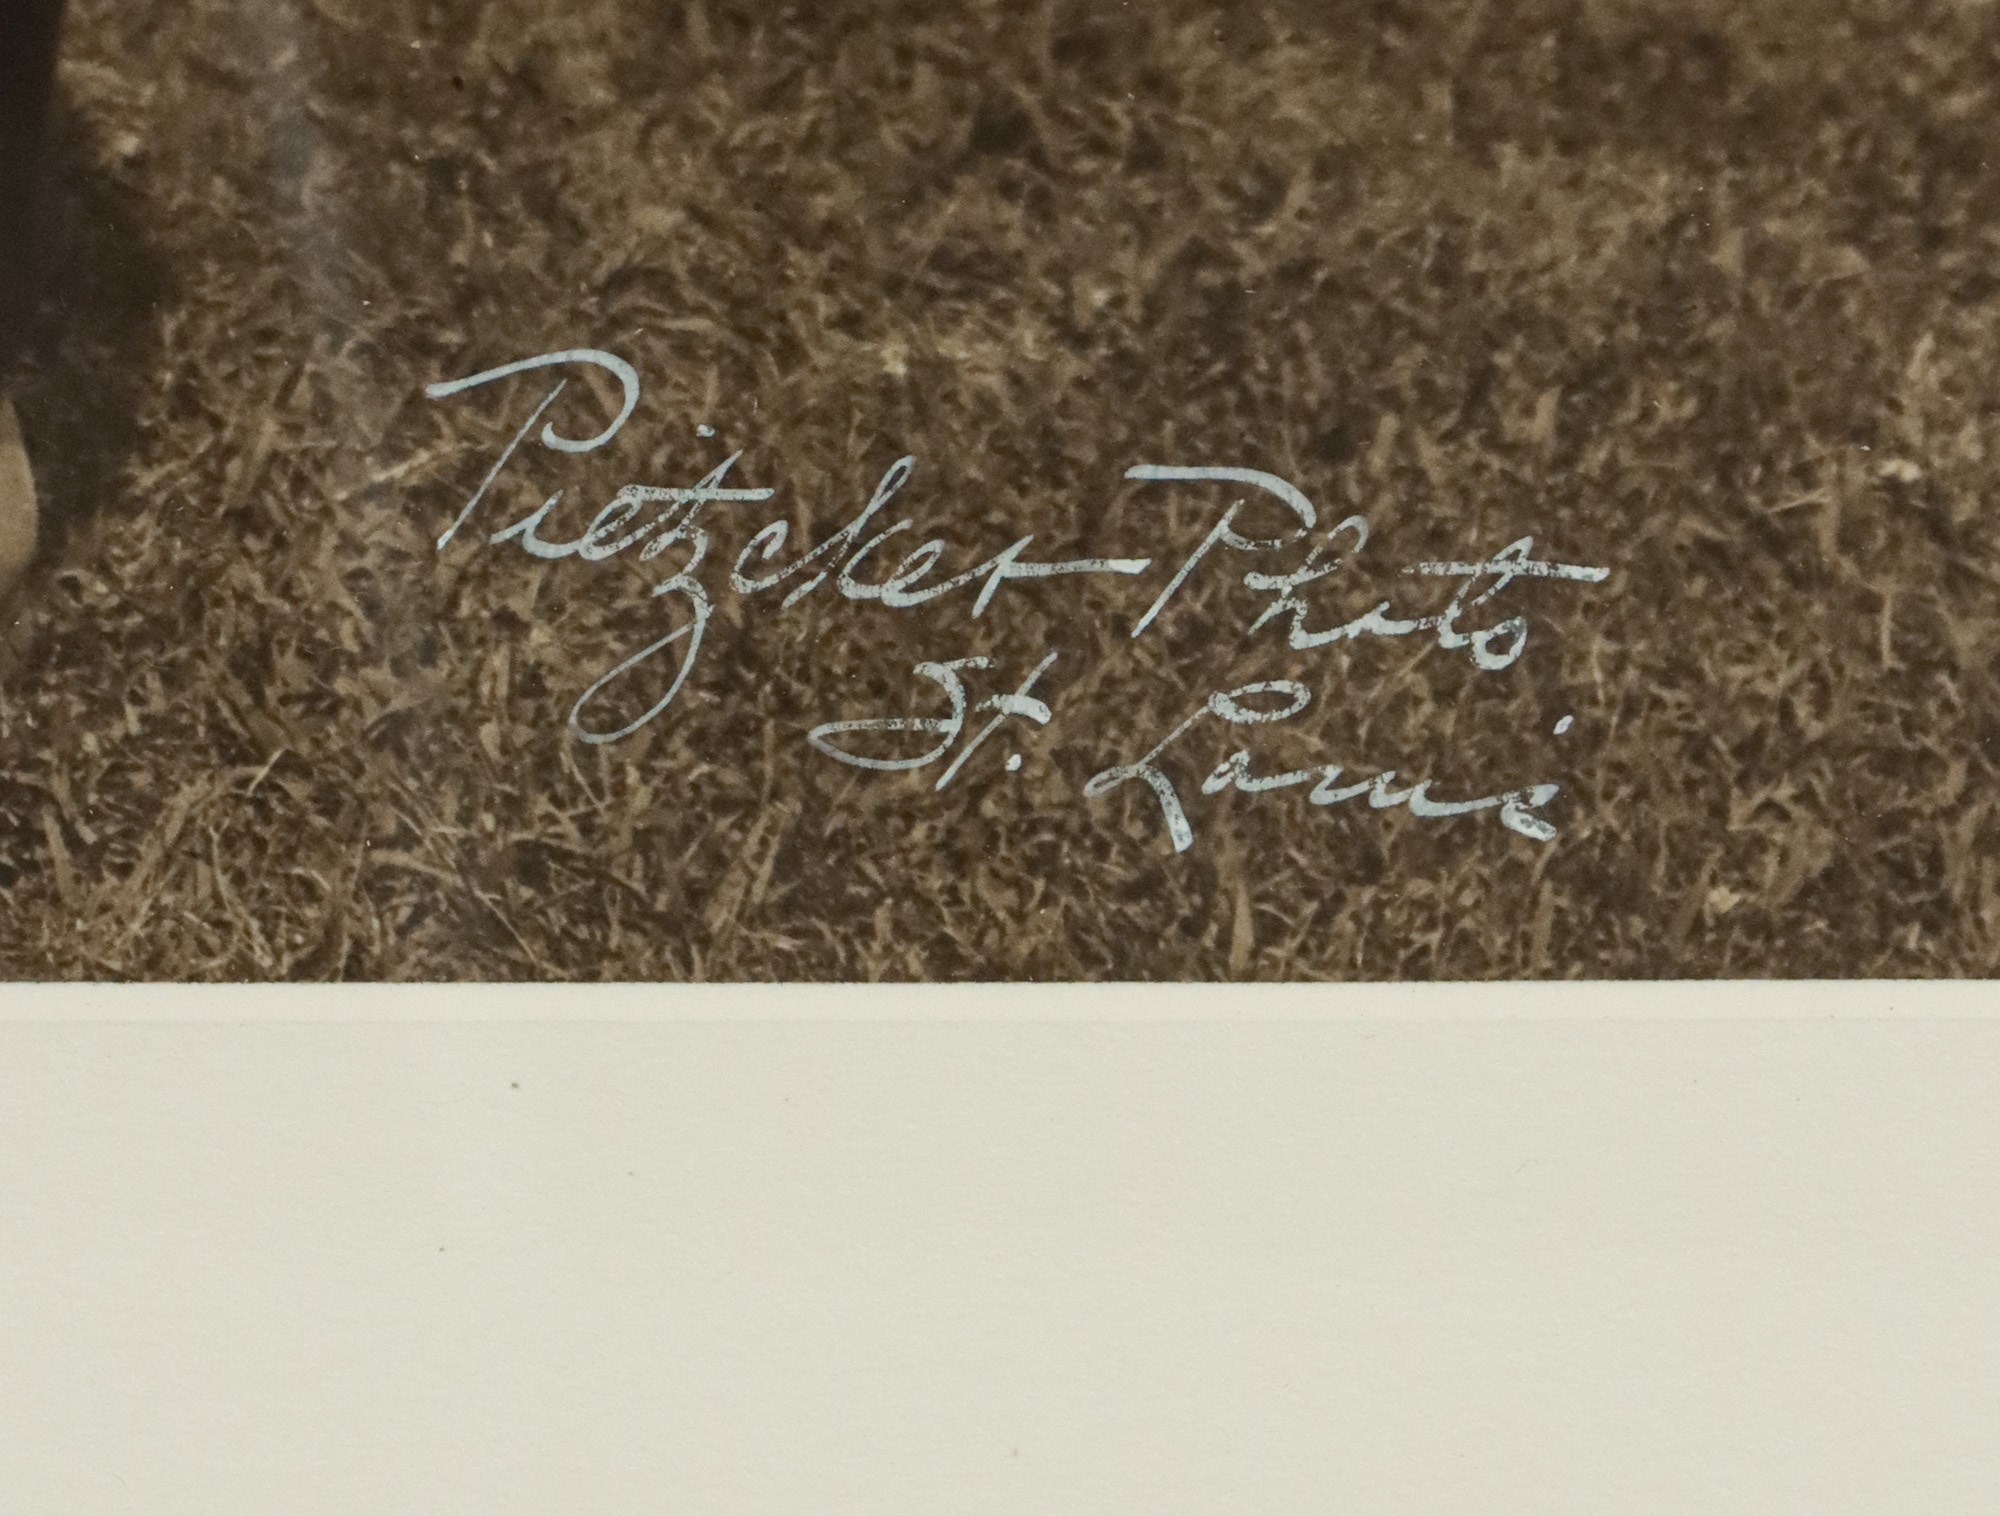 Pietzcker Photo
St. Louis